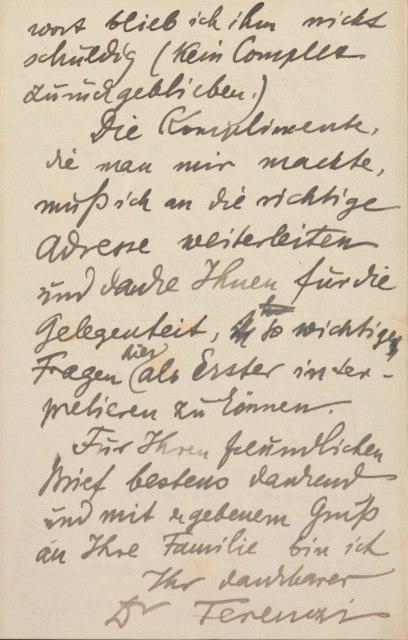 wort blieb ich ihm nicht
schuldig (Kein Complex
zurückgeblieben.)
Die Komplimente,
die man mir machte,
muß ich an die richtige
Adresse weiterleiten
und danke Ihnen für die
Gelegenheit, so wichtige
Fragen hier als Erster inter-
pretieren zu können.
Für Ihren freundlichen
Brief bestens dankend
und mit ergebenem Gruß
an Ihre Familie bin ich
Ihr dankbarer
Dr Ferenczi